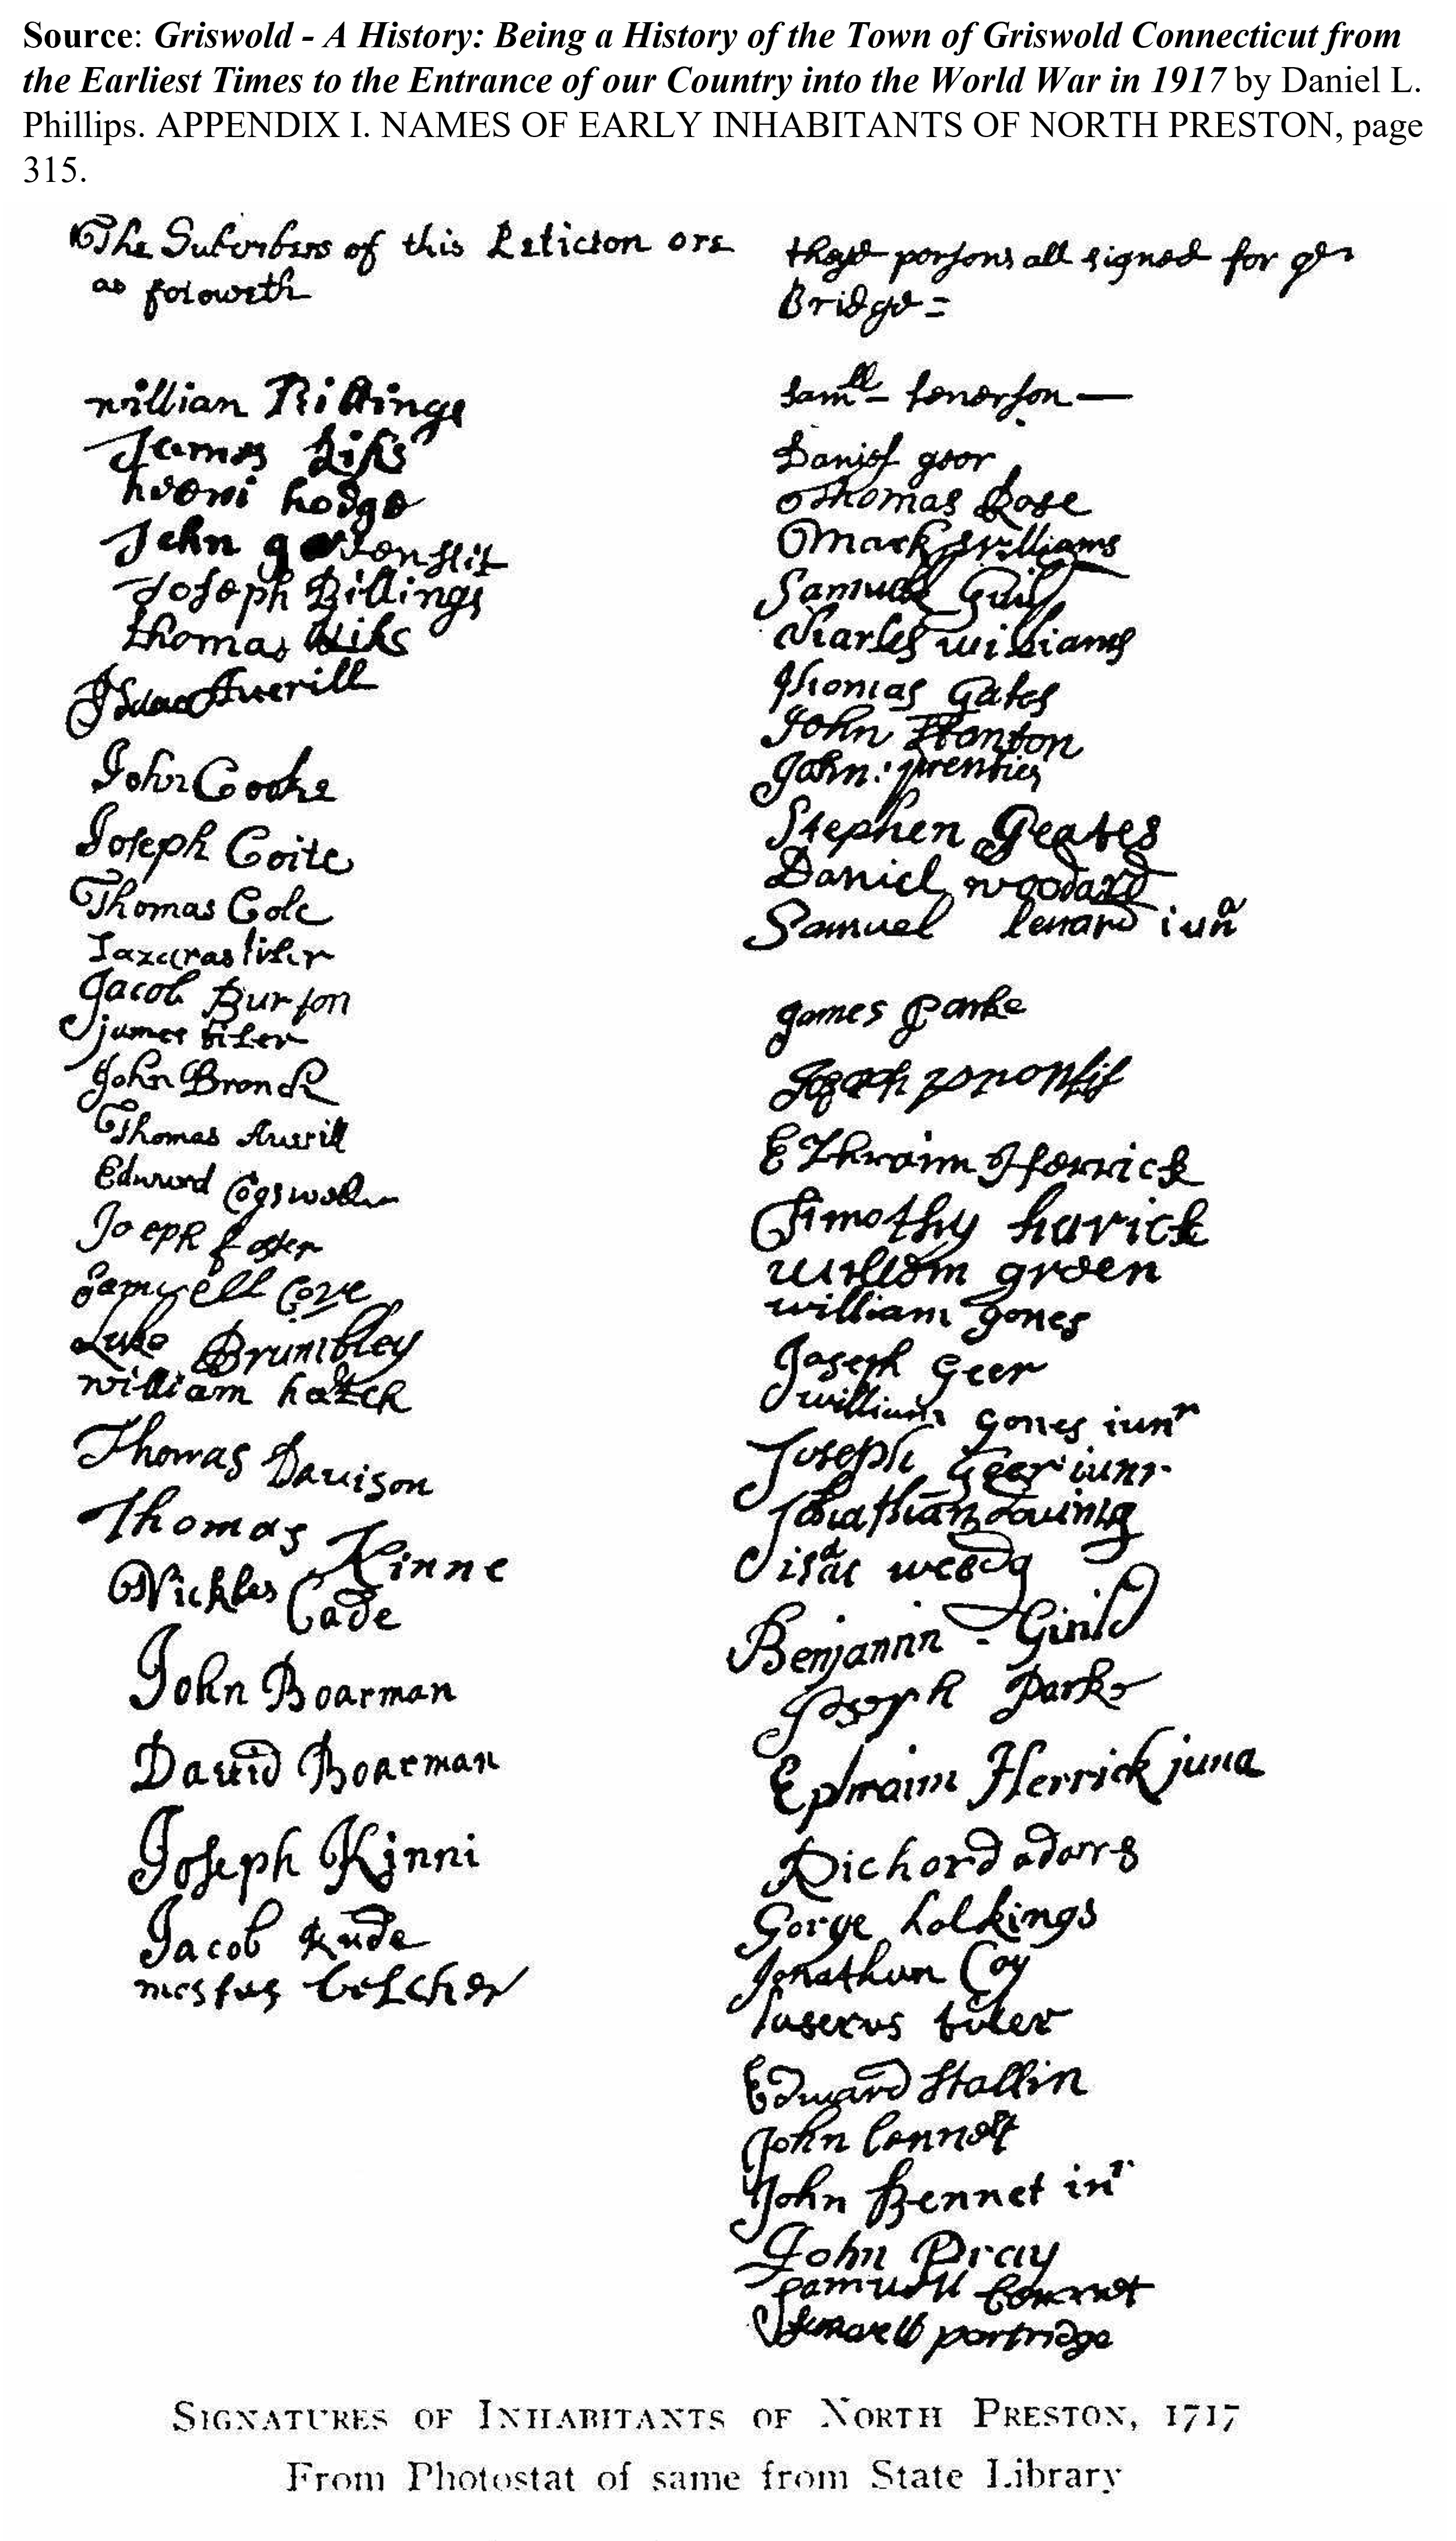 Source: Griswold - A History: Being a History of the Town of Griswold Connecticut from
the Earliest Times to the Entrance of our Country into the World War in 1917 by Daniel L.
Phillips. APPENDIX I. NAMES OF EARLY INHABITANTS OF NORTH PRESTON, page
315.
The of this
as foloweth
willian Billings
James
hodge
John
Joseph Billings
thomas
Isaac Averill
John Cooke
Joseph Coite
Thomas Cole
Jacob Burton
james tiler
John
Thomas Averill
Edward Cogswell
Joseph foster
Samuell
Luke Brumbley
william hatch
Thomas Davison
Thomas Kinne
Nickles Cade
John Boarman
David Boarman
Joseph Kinni
Jacob Rude
belcher
these porsons all signed for
Bridge =
samll
Daniel geer
Thomas Rose
Mark williams
Samuel Guil
Charles williams
Thomas Gates
John Stanton
John: prenties
Stephen Geates
Daniel woodard
Samuel lenard
James Parke
Joseph
Herrick
Timothy harick
green
william Jones
Joseph Geer
william Jones iunr
Joseph Geer iunr
Benjamin Guild
Joseph Parke
Ephraim Herrick
Richard
Gorge holkings
Jonathan Coy
tiler
Edward Stallin
John
John Bennet inr
John Pray
partridge
SIGNATURES OF INHABITANTS OF NORTH PRESTON, 1717
From Photostat of same from State Library